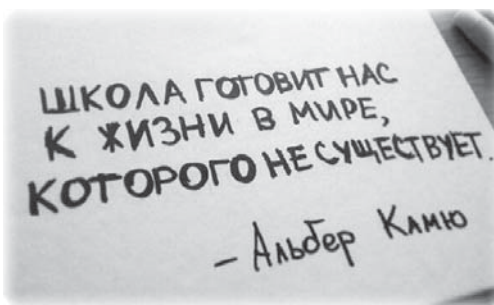 ШКОЛА ГОТОВИТ НАС
К ЖИЗНИ В МИРЕ,
КОТОРОГО НЕ СУЩЕСТВУЕТ.
- Альбер Камю